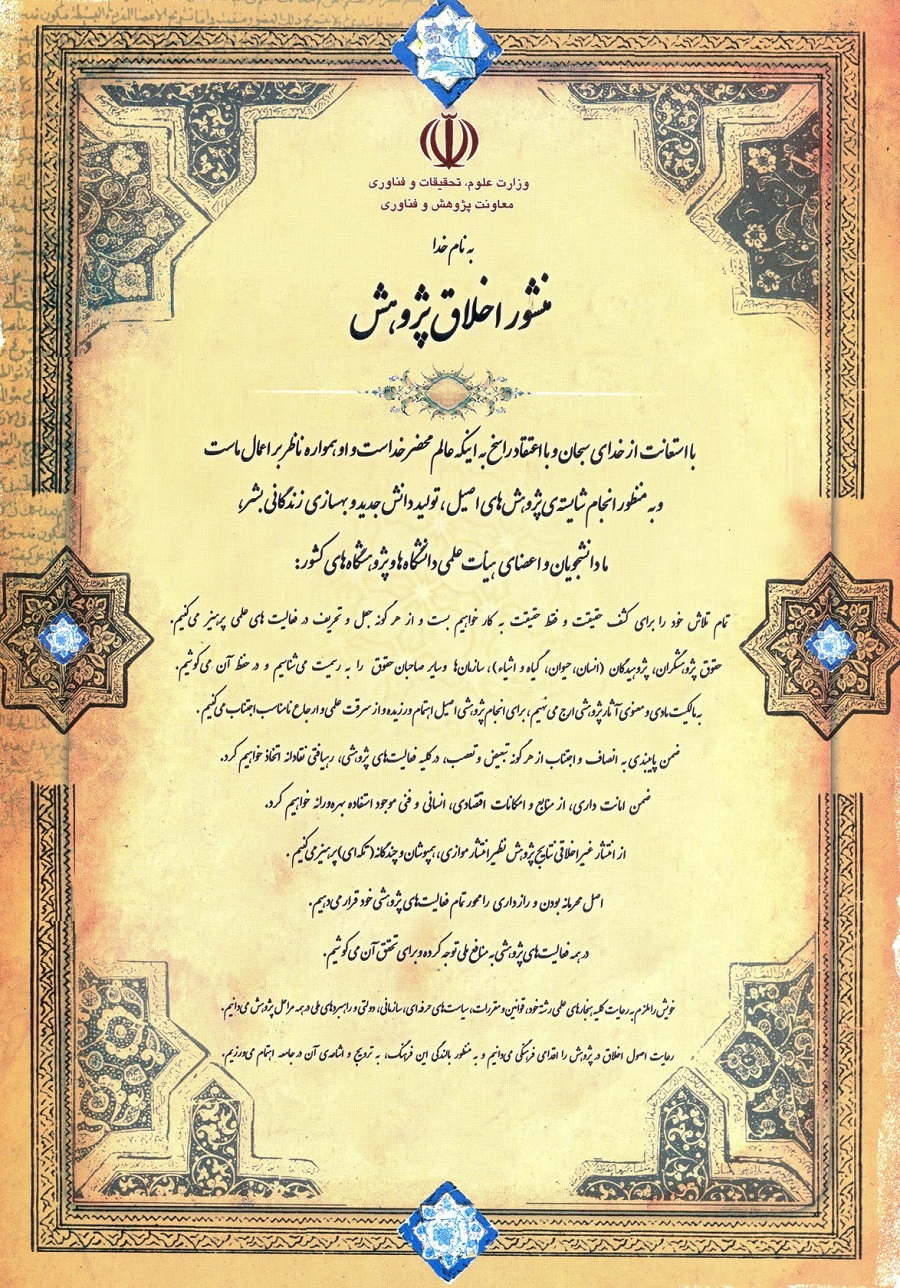 وزارت علوم، تحقیقات و فناوری
معاونت پژوهش و فناوری
به نام خدا
منشور اخلاق پژوهش
با استعانت از خدای سبحان و با اعتقاد راسخ به اینکه عالم محضر خداست و او همواره ناظر بر اعمال ماست
و به منظور انجام شایسته‌ی پژوهش‌های اصیل، تولید دانش جدید و بهسازی زندگانی بشر،
ما دانشجویان و اعضای هیأت علمی دانشگاه‌ها و پژوهشگاه‌های کشور:
تمام تلاش خود را برای کشف حقیقت و فقط حقیقت به کار خواهیم بست و از هر گونه جعل و تحریف در فعالیت های علمی پرهیز می‌کنیم.
حقوق پژوهشگران، پژوهیدگان (انسان، حیوان، گیاه و اشیاء)، سازمان‌ها و سایر صاحبان حقوق را به رسمیت می‌شناسیم و در حفظ آن می‌کوشیم.
به مالکیت مادی و معنوی آثار پژوهشی ارج می‌نهیم، برای انجام پژوهشی اصیل اهتمام ورزیده و از سرقت علمی و ارجاع نامناسب اجتناب می‌کنیم.
ضمن پایبندی به انصاف و اجتناب از هر گونه تبعیض و تعصب، در کلیه فعالیت‌های پژوهشی، رهیافتی نقادانه اتخاذ خواهیم کرد.
ضمن امانت داری، از منابع و امکانات اقتصادی، انسانی و فنی موجود استفاده بهره‌ورانه خواهیم کرد.
از انتشار غیر اخلاقی نتایج پژوهش نظیر انتشار موازی، همپوشان و چندگانه (تکه‌ای) پرهیز می‌کنیم.
اصل محرمانه بودن و رازداری را محور تمام فعالیت‌های پژوهشی خود قرار می‌دهیم.
در همه فعالیت‌های پژوهشی به منافع ملی توجه کرده و برای تحقق آن می‌کوشیم.
خویش را ملزم به رعایت کلیه هنجارهای علمی رشته خود، قوانین و مقررات، سیاست‌های حرفه‌ای، سازمانی، دولتی و راهبردهای ملی در همه مراحل پژوهش می‌دانیم.
رعایت اصول اخلاق در پژوهش را اقدامی فرهنگی می‌دانیم و به منظور بالندگی این فرهنگ، به ترویج و اشاعه‌ی آن در جامعه اهتمام می‌ورزیم.